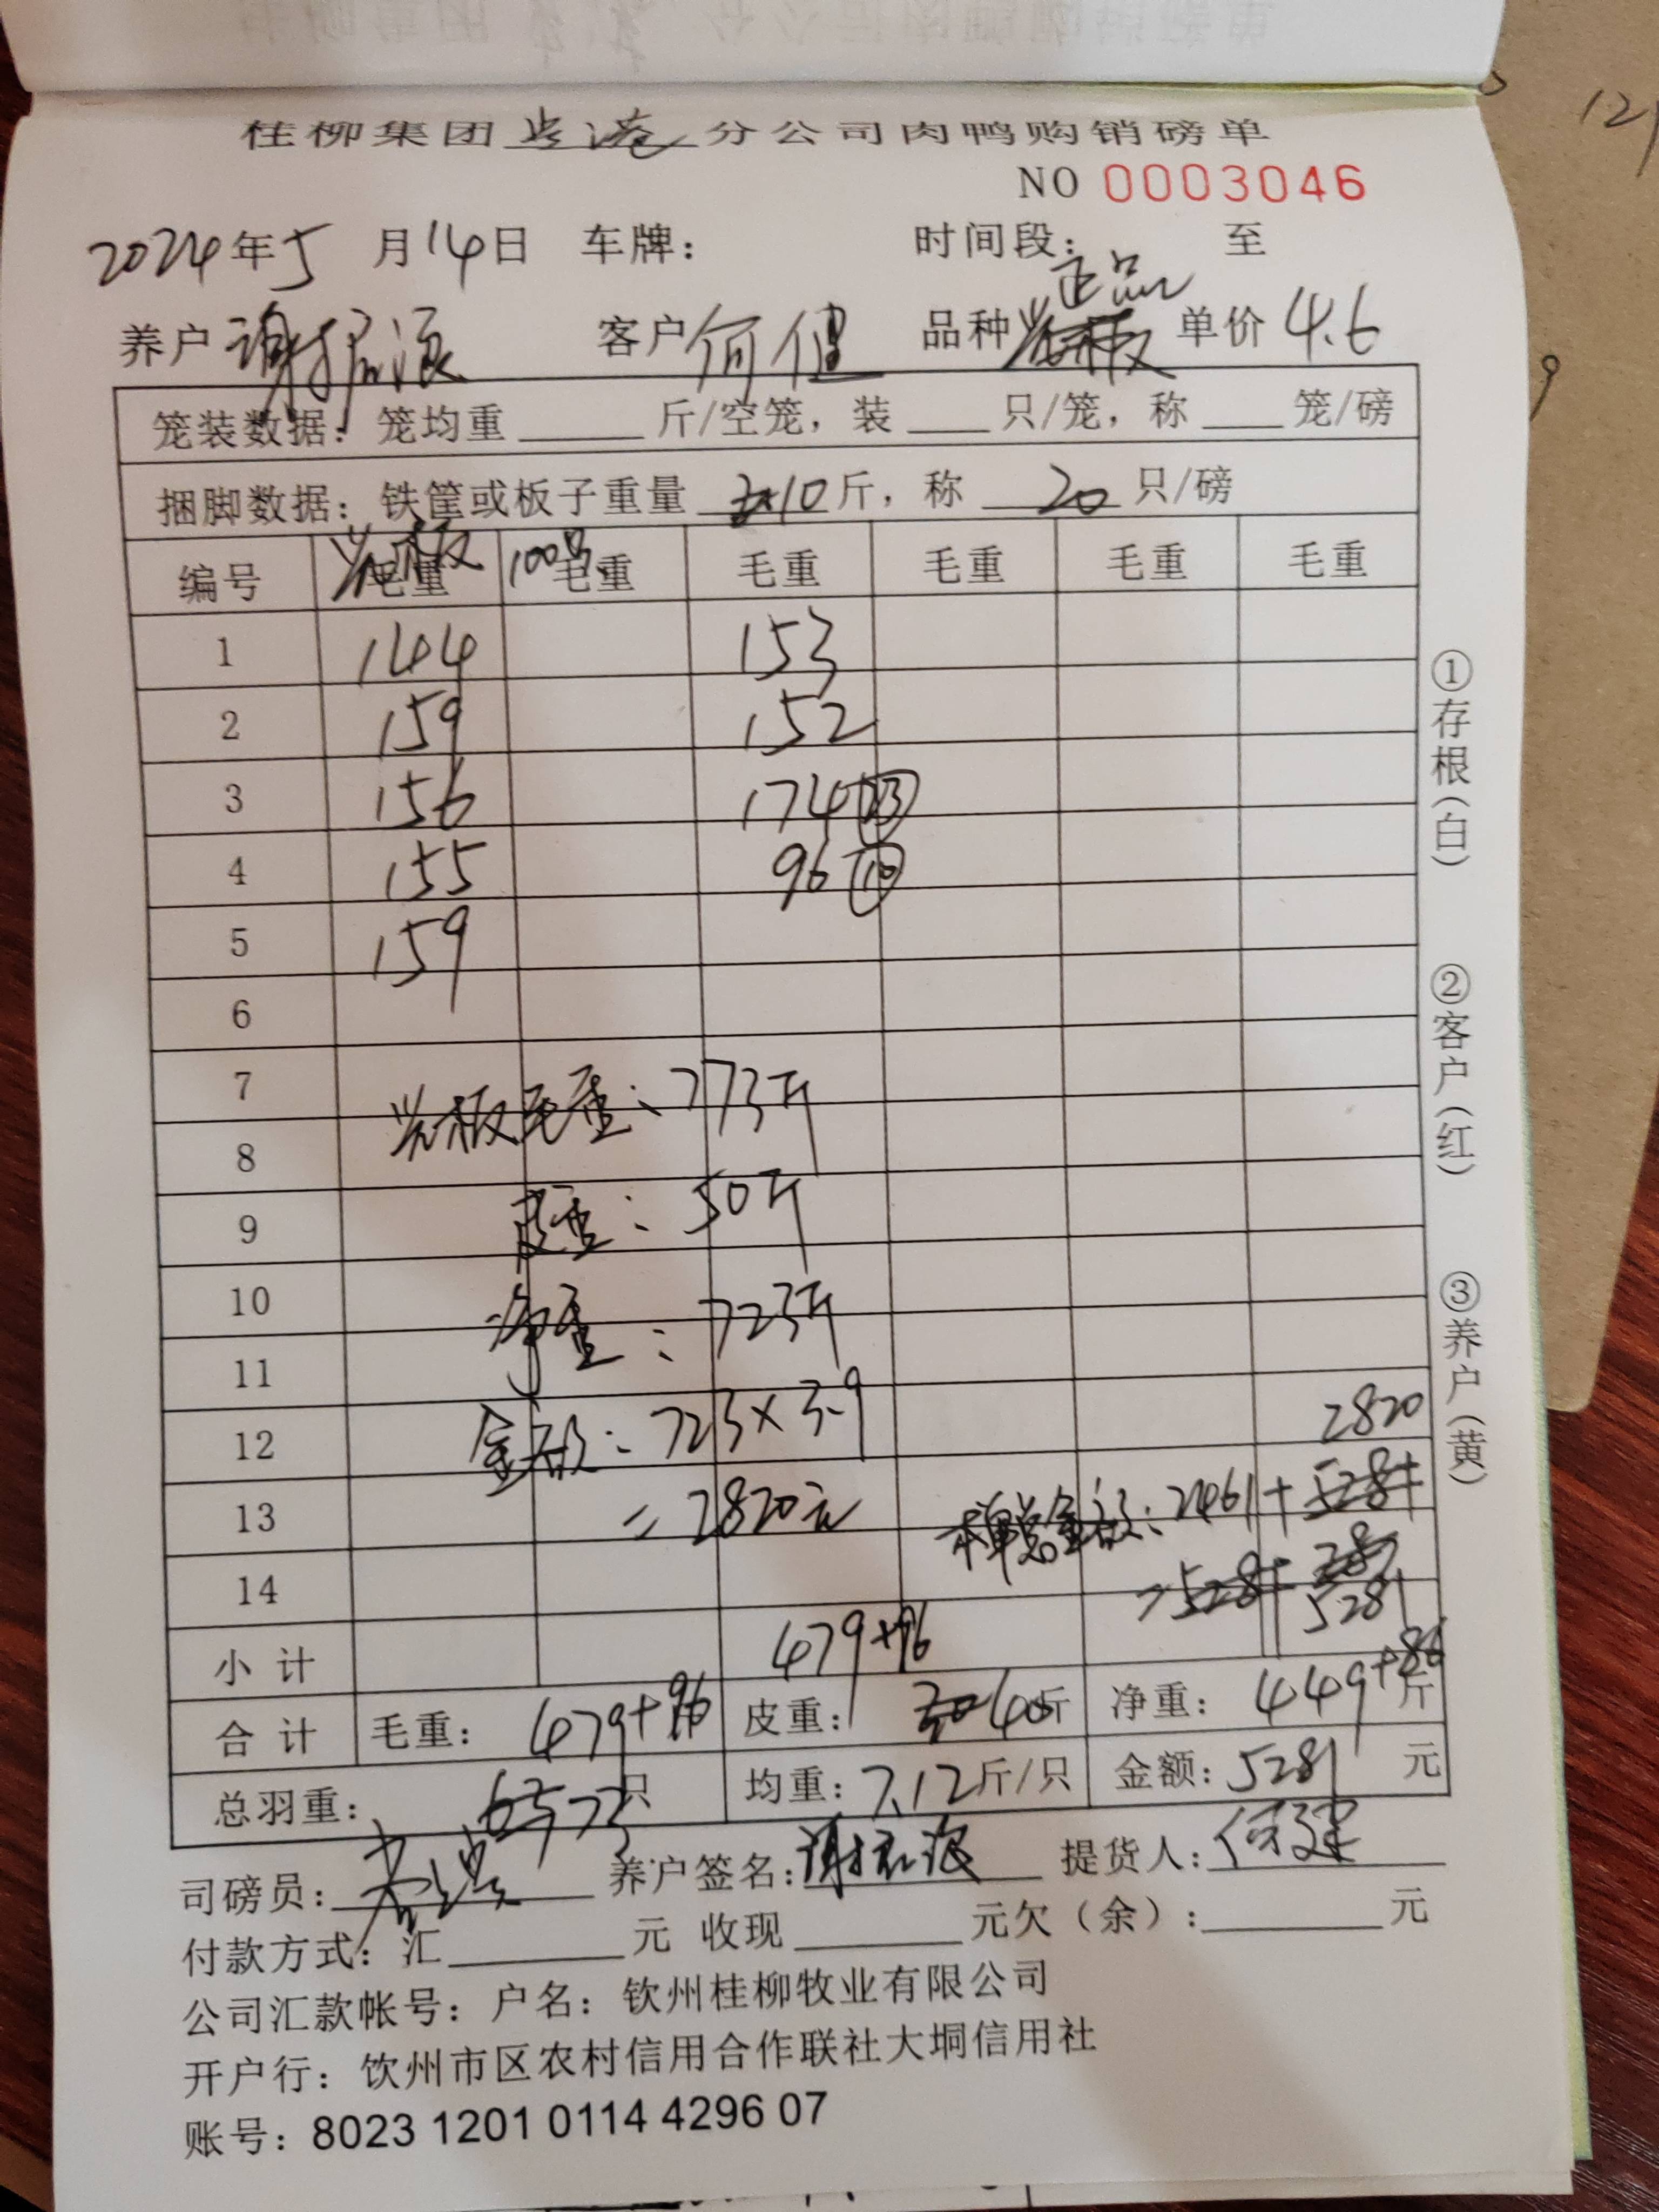 桂柳集团 港分公司肉鸭购销磅单
NO 0003046
2024年5月14日 车牌: 时间段: 至
正品
养户 谢 浪 客户 何健 品种 单价 4.6
笼装数据: 笼均重 斤/空笼, 装 只/笼, 称 笼/磅
捆脚数据: 铁筐或板子重量 10斤, 称 20 只/磅
编号 毛重 100只 毛重 毛重 毛重 毛重 毛重
1 144 153
2 159 152
3 156 174
4 155 96 ⑩
5 159
6
7
板毛重: 773斤
8
9 皮重: 50斤
10
净重: 723斤
11
12 金额: 723×3.9 2820
13 =2820元 本单总金额: 2461+
14 = 5281
小计 479+96
合计 毛重: 479+96 皮重: 40斤 净重: 449+86斤
总羽重: 73只 均重: 7.12斤/只 金额: 5281元
司磅员: 养户签名: 谢 浪 提货人: 何建
付款方式: 汇 元 收现 元欠(余): 元
公司汇款帐号: 户名: 钦州桂柳牧业有限公司
开户行: 饮州市区农村信用合作联社大垌信用社
账号: 8023 1201 0114 4296 07
①存根(白) ②客户(红) ③养户(黄)
121
9